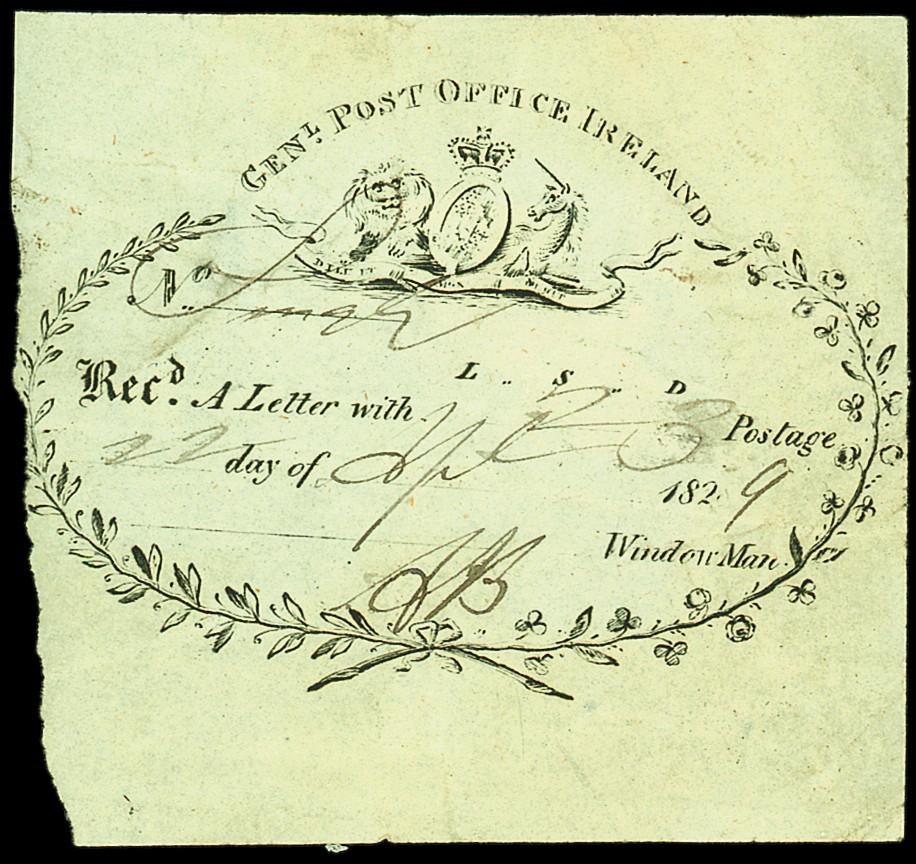 GENL. POST OFFICE IRELAND
DIEU ET MON DROIT
No
L .. S .. D
Recd. A Letter with 2 3 Postage
22 day of Ap 1829
Window Man
AB